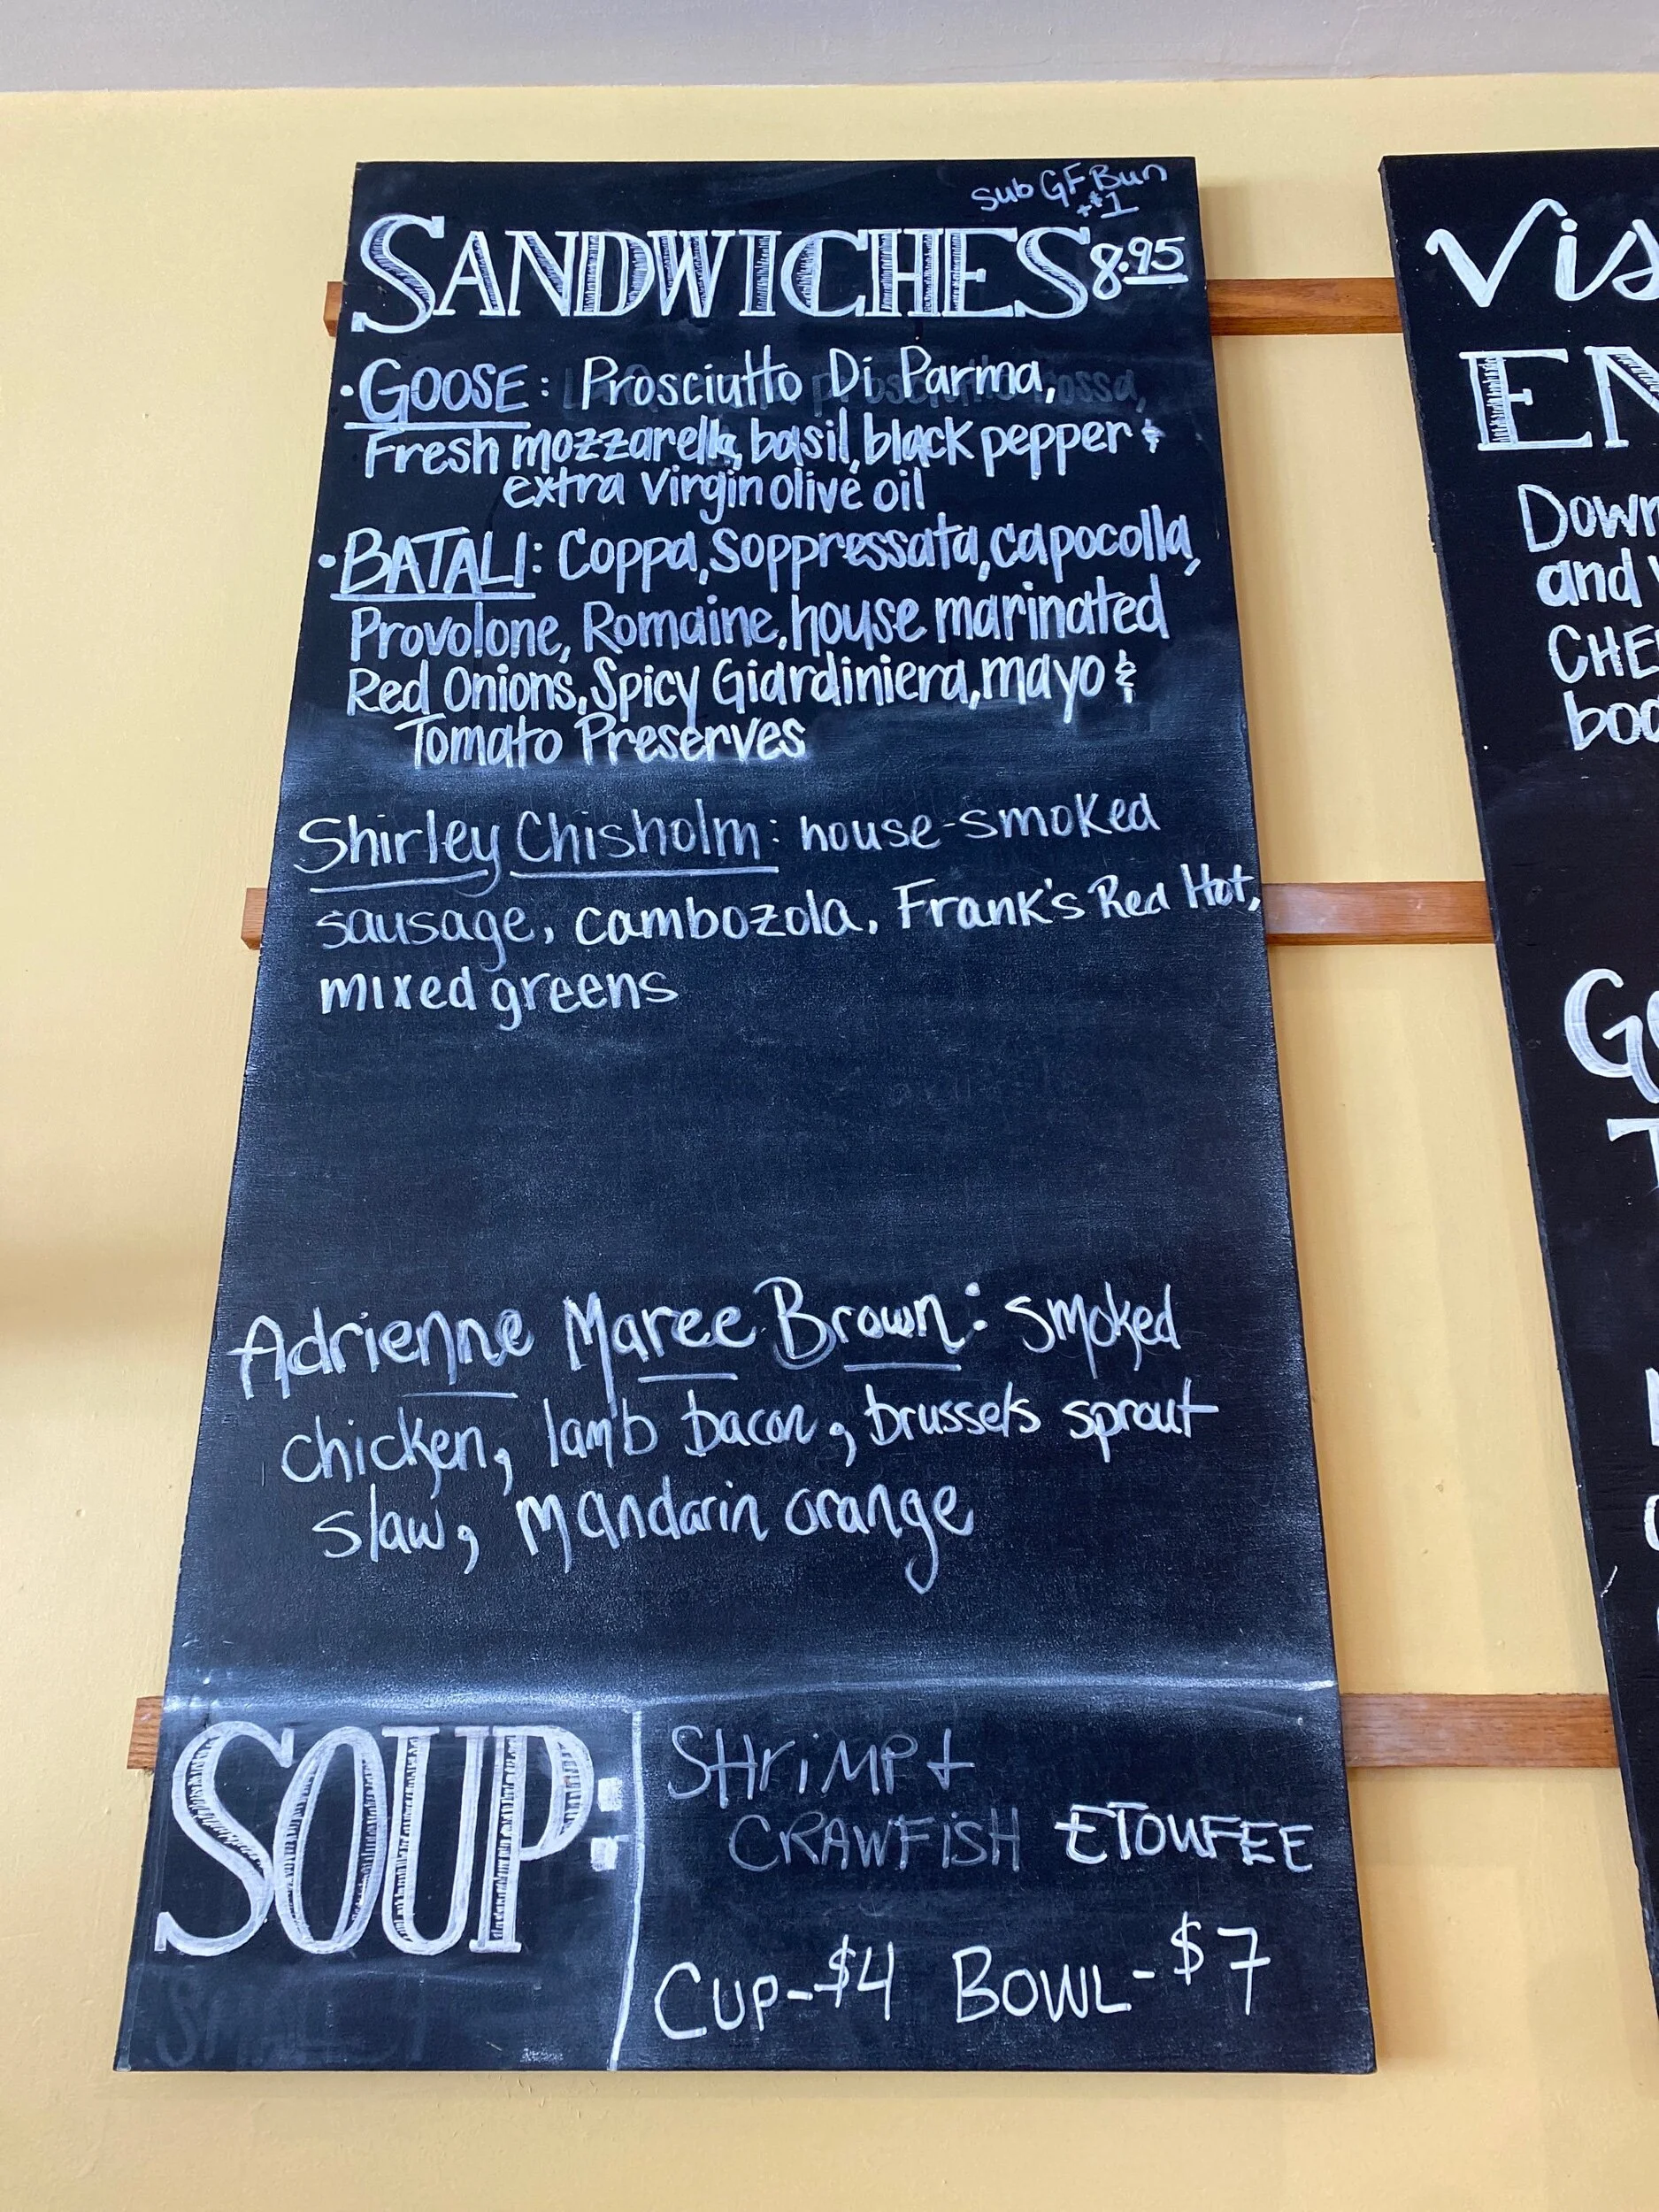 sub GF Bun
+$1
SANDWICHES 8.95
• GOOSE: Prosciutto Di Parma,
Fresh mozzarella, basil, black pepper &
extra virgin olive oil
• BATALI: Coppa, Soppressata, capocolla,
Provolone, Romaine, house marinated
Red Onions, Spicy Giardiniera, mayo &
Tomato Preserves
Shirley Chisholm: house-smoked
sausage, cambozola, Frank's Red Hot,
mixed greens
Adrienne Maree Brown: smoked
chicken, lamb bacon, brussels sprout
slaw, mandarin orange
SOUP:
SHRiMP +
CRAWFiSH ETOUFEE
CUP-$4 BOWL-$7
Vis
EN
Down
and
CHE